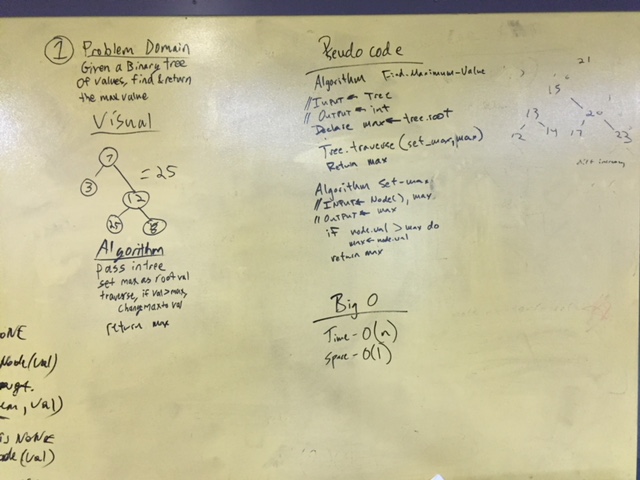 1 Problem Domain
Given a Binary Tree
of values, find & return
the max value
Visual
7
= 25
3
12
25 8
Algorithm
pass in tree
set max as root val
traverse, if val > max,
change max to val
return max
Pseudo code
Algorithm Find-Maximum-Value
// INPUT ← Tree
// OUTPUT ← int
Declare max ← tree.root
Tree.traverse(set_max, max)
Return max
Algorithm Set-max
// INPUT ← Node(), max
// OUTPUT ← max
if node.val > max do
max ← node.val
return max
Big O
Time - O(n)
Space - O(1)
21
15
13 20
12 14 17 23
NONE
Node(val)
, val)
is NONE
Node(val)